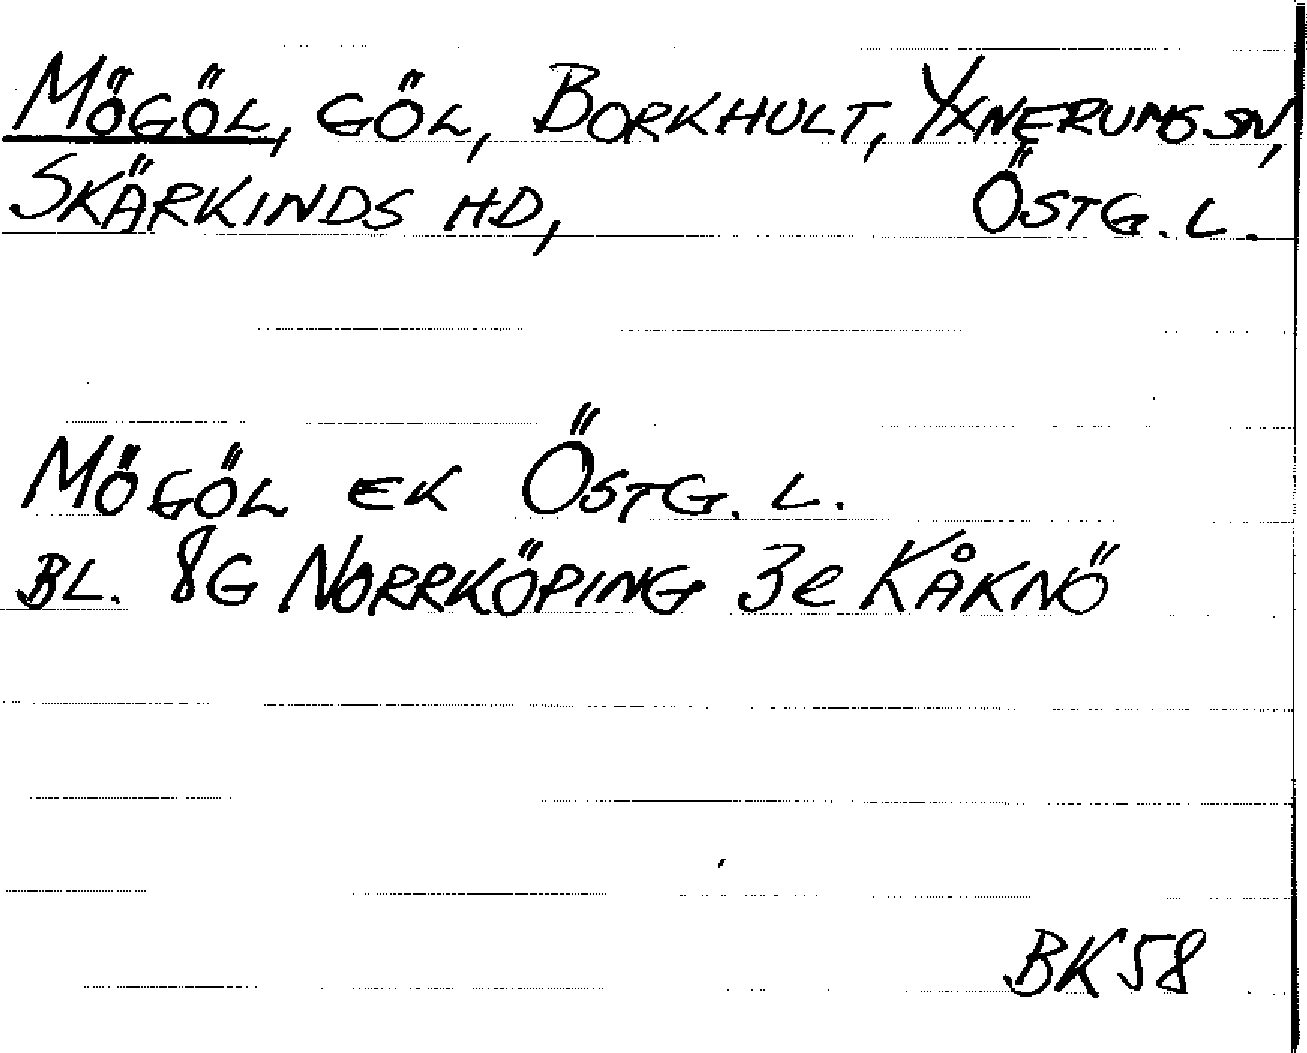 MÖGÖL, GÖL, BORKHULT, YXNERUMS SN,
SKÄRKINDS HD, ÖSTG. L.
MÖGÖL EK ÖSTG. L.
BL. 8G NORRKÖPING 3e KÅKNÖ
BK58